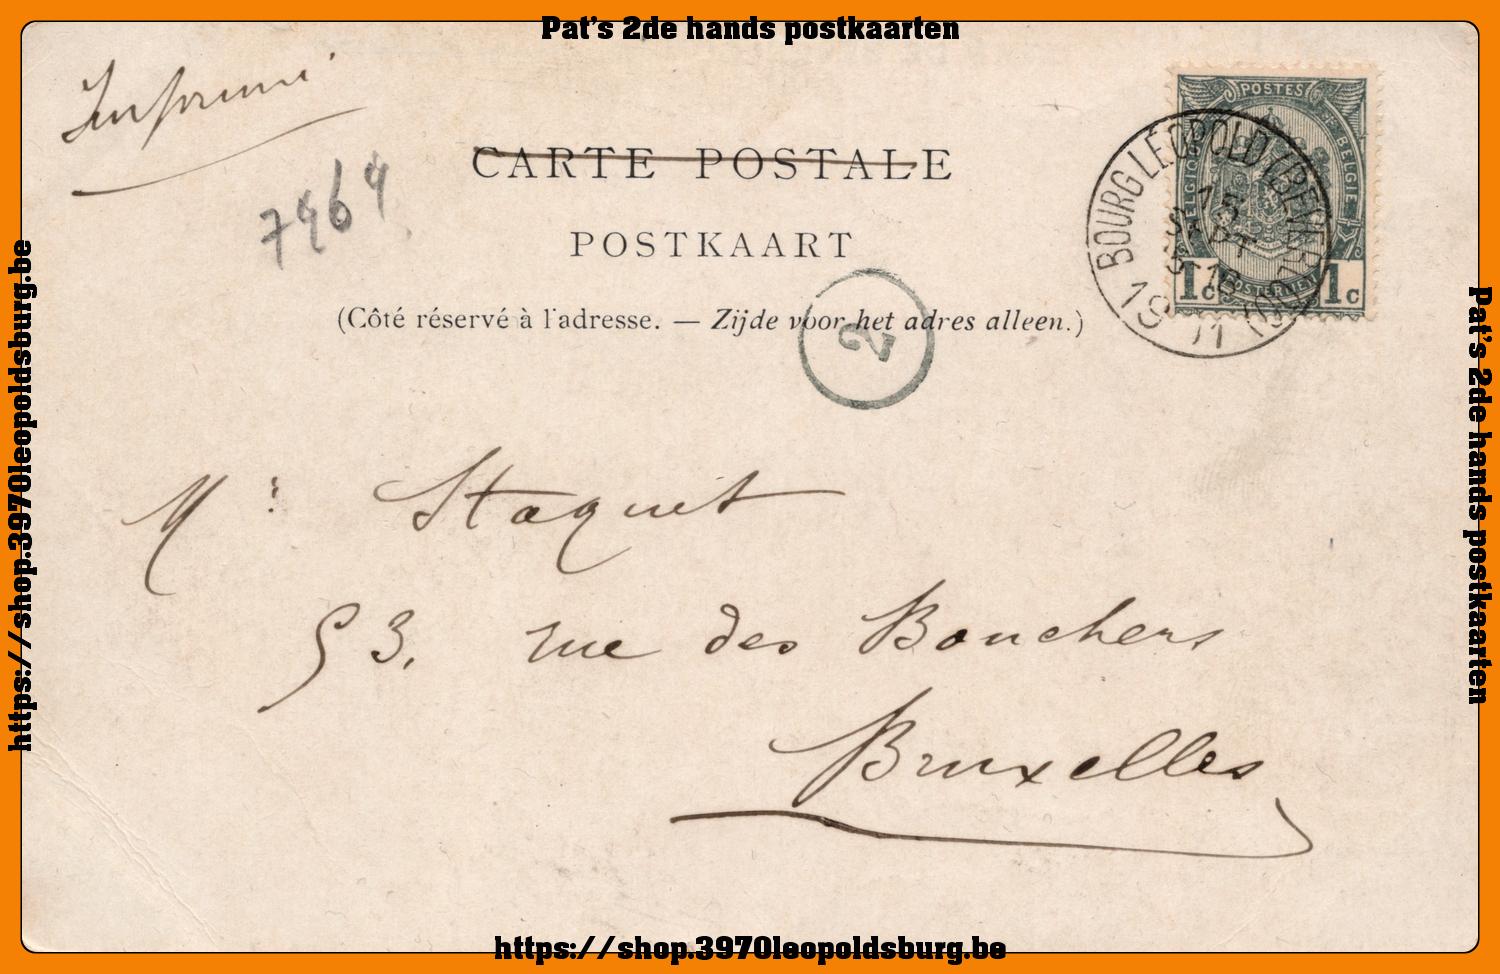 Pat's 2de hands postkaarten
Imprimé
7464
CARTE POSTALE
POSTKAART
(Côté réservé à l'adresse. — Zijde voor het adres alleen.)
POSTES
BELGIQUE
BELGIE
POSTERIJEN
1c 1c
BOURG LÉOPOLD (BEVERLOO)
15
SEPT
1901
2
Mr Staquet
53, rue des Bouchers
Bruxelles
https://shop.3970leopoldsburg.be
Pat's 2de hands postkaarten
https://shop.3970leopoldsburg.be